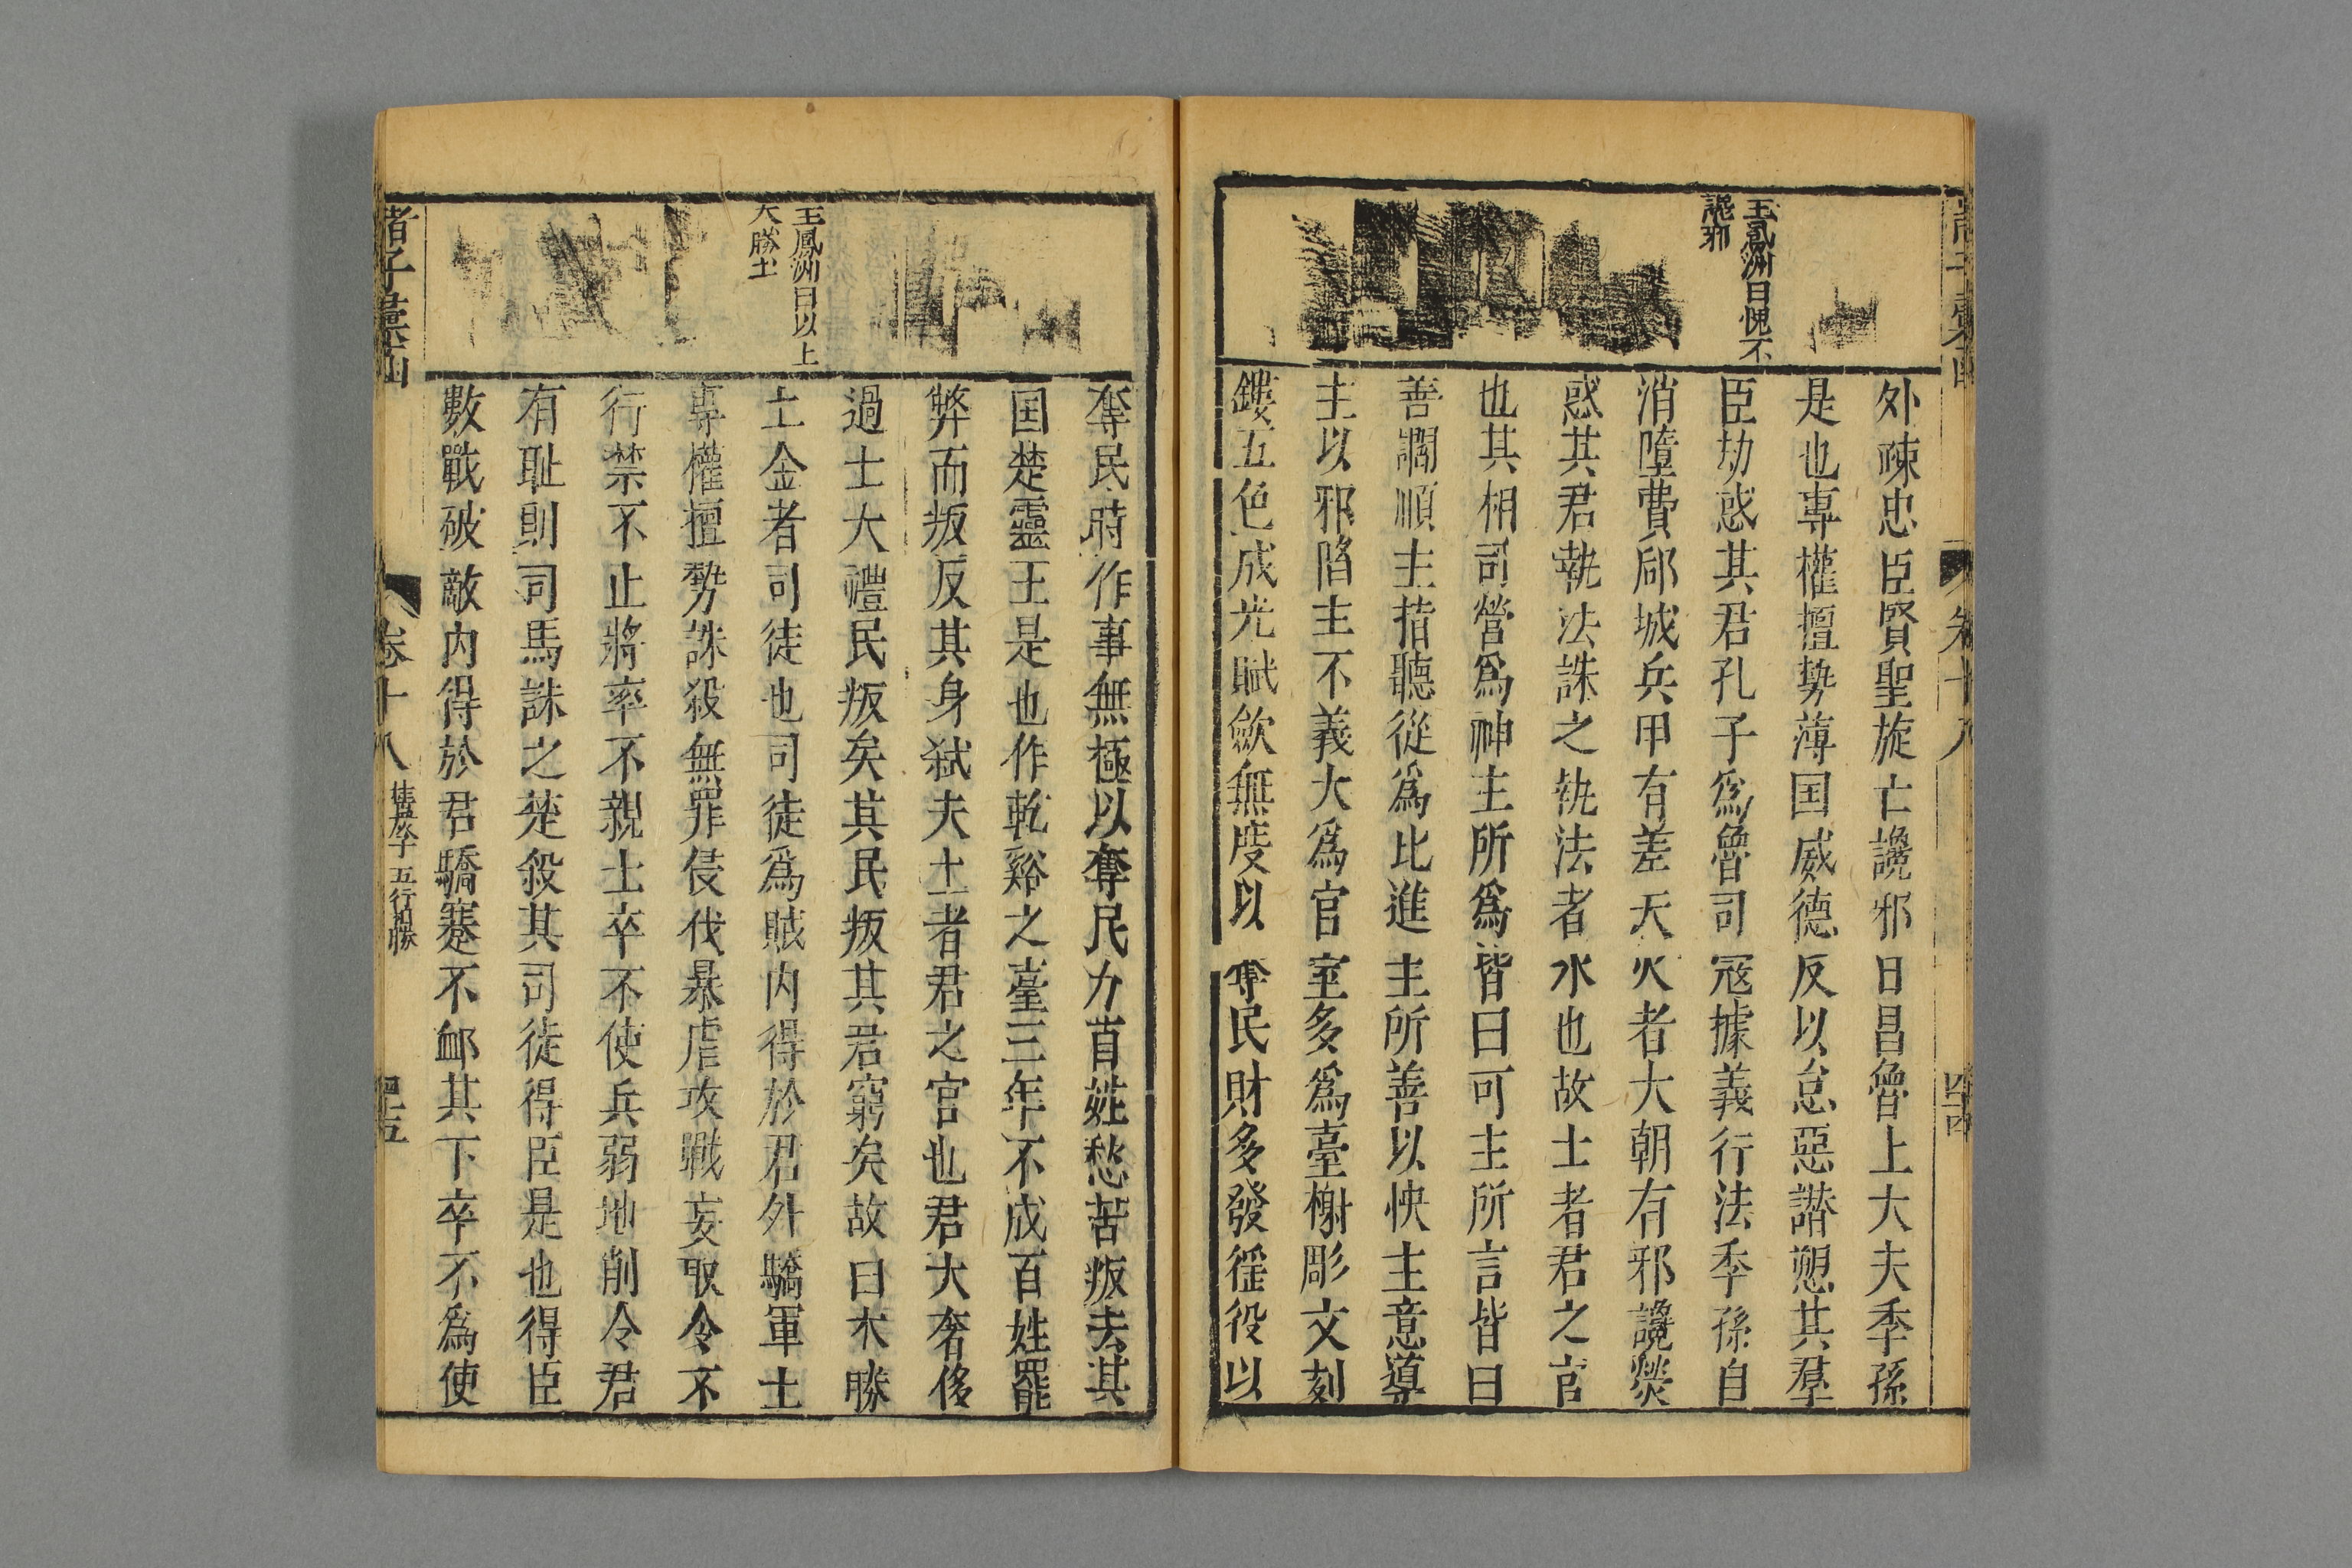 王鳳洲曰愧不
讒邪
外疎忠臣賢聖旋亡讒邪日昌魯上大夫季孫
是也專權擅勢薄国威德反以怠惡譛愬其羣
臣劫惑其君孔子為魯司冦據義行法季孫自
消墮費郈城兵甲有差夫火者大朝有邪讒熒
惑其君執法誅之執法者水也故
土者君之官
也其相司營為神主所為皆曰可主所言皆曰
善讇順主指聽從為比進主所善以快主意導
主以邪陷主不義大為宫室多為臺榭彫文刻
鏤五色成光賦歛無度以奪民財多發徭役以
王鳳洲曰以上
大勝土
奪民時作事無極以奪民力百姓愁苦叛去其
国楚靈王是也作乾谿之臺三年不成百姓罷
弊而叛反其身弑夫土者君之官也君大奢侈
過土大禮民叛矣其民叛其君窮矣故曰木勝
土金者司徒也司徒為賊内得於君外驕軍士
專權擅勢誅殺無罪侵伐暴虐攻戰妄取令不
行禁不止將率不親士卒不使兵弱地削令君
有耻則司馬誅之楚殺其司徒得臣是也得臣
數戰破敵内得於君驕蹇不䘏其下卒不為使
諸子彚函
卷十八
桂巖子五行相勝
四十五